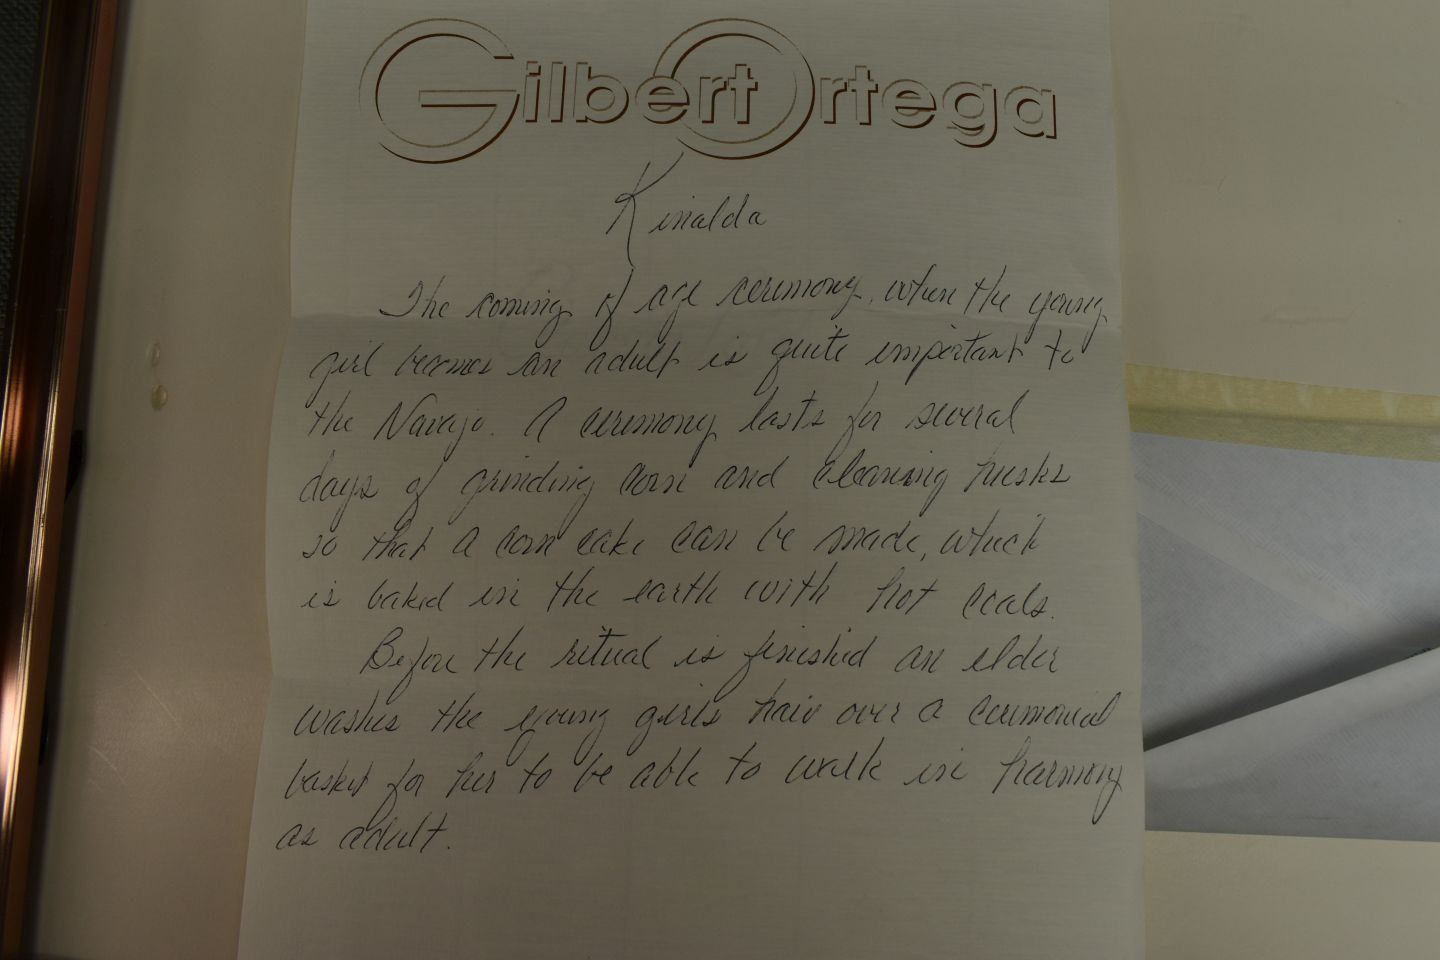 Gilbert Ortega
Kinalda
The coming of age ceremony, when the young
girl becomes an adult is quite important to
the Navajo. A ceremony lasts for several
days of grinding corn and cleaning husks
so that a corn cake can be made, which
is baked in the earth with hot coals.
Before the ritual is finished an elder
washes the young girls hair over a ceremonial
basket for her to be able to walk in harmony
as adult.